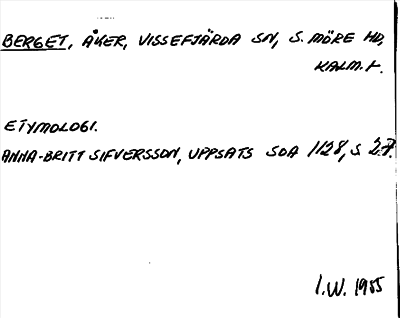 BERGET, ÅKER, VISSEFJÄRDA SN, S. MÖRE HD,
KALM. L.
ETYMOLOGI.
ANNA-BRITT SIFVERSSON, UPPSATS SOA 1128, S 27.
I.W. 1985